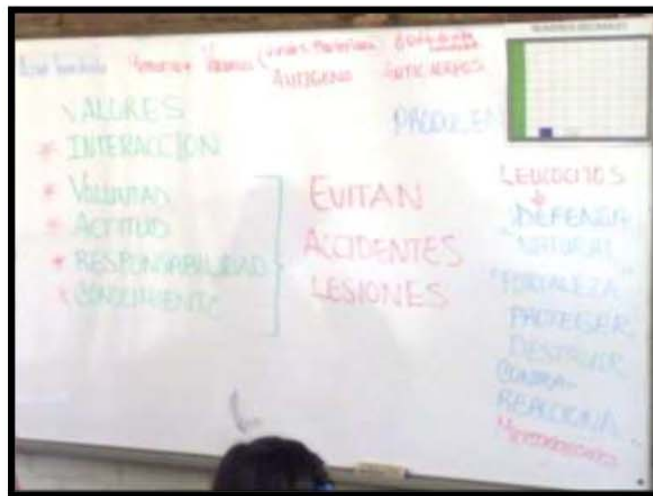 ANTIGENO ANTICUERPOS
VALORES
* INTERACCION
* VOLUNTAD
* ACTITUD
* RESPONSABILIDAD
* CONOCIMIENTO
EVITAN
ACCIDENTES
LESIONES
PRODUCEN
LEUCOCITOS
DEFENSA
"NATURAL"
"FORTALEZA"
PROTEGER
DESTRUIR
CONTRA-
REACCIONA